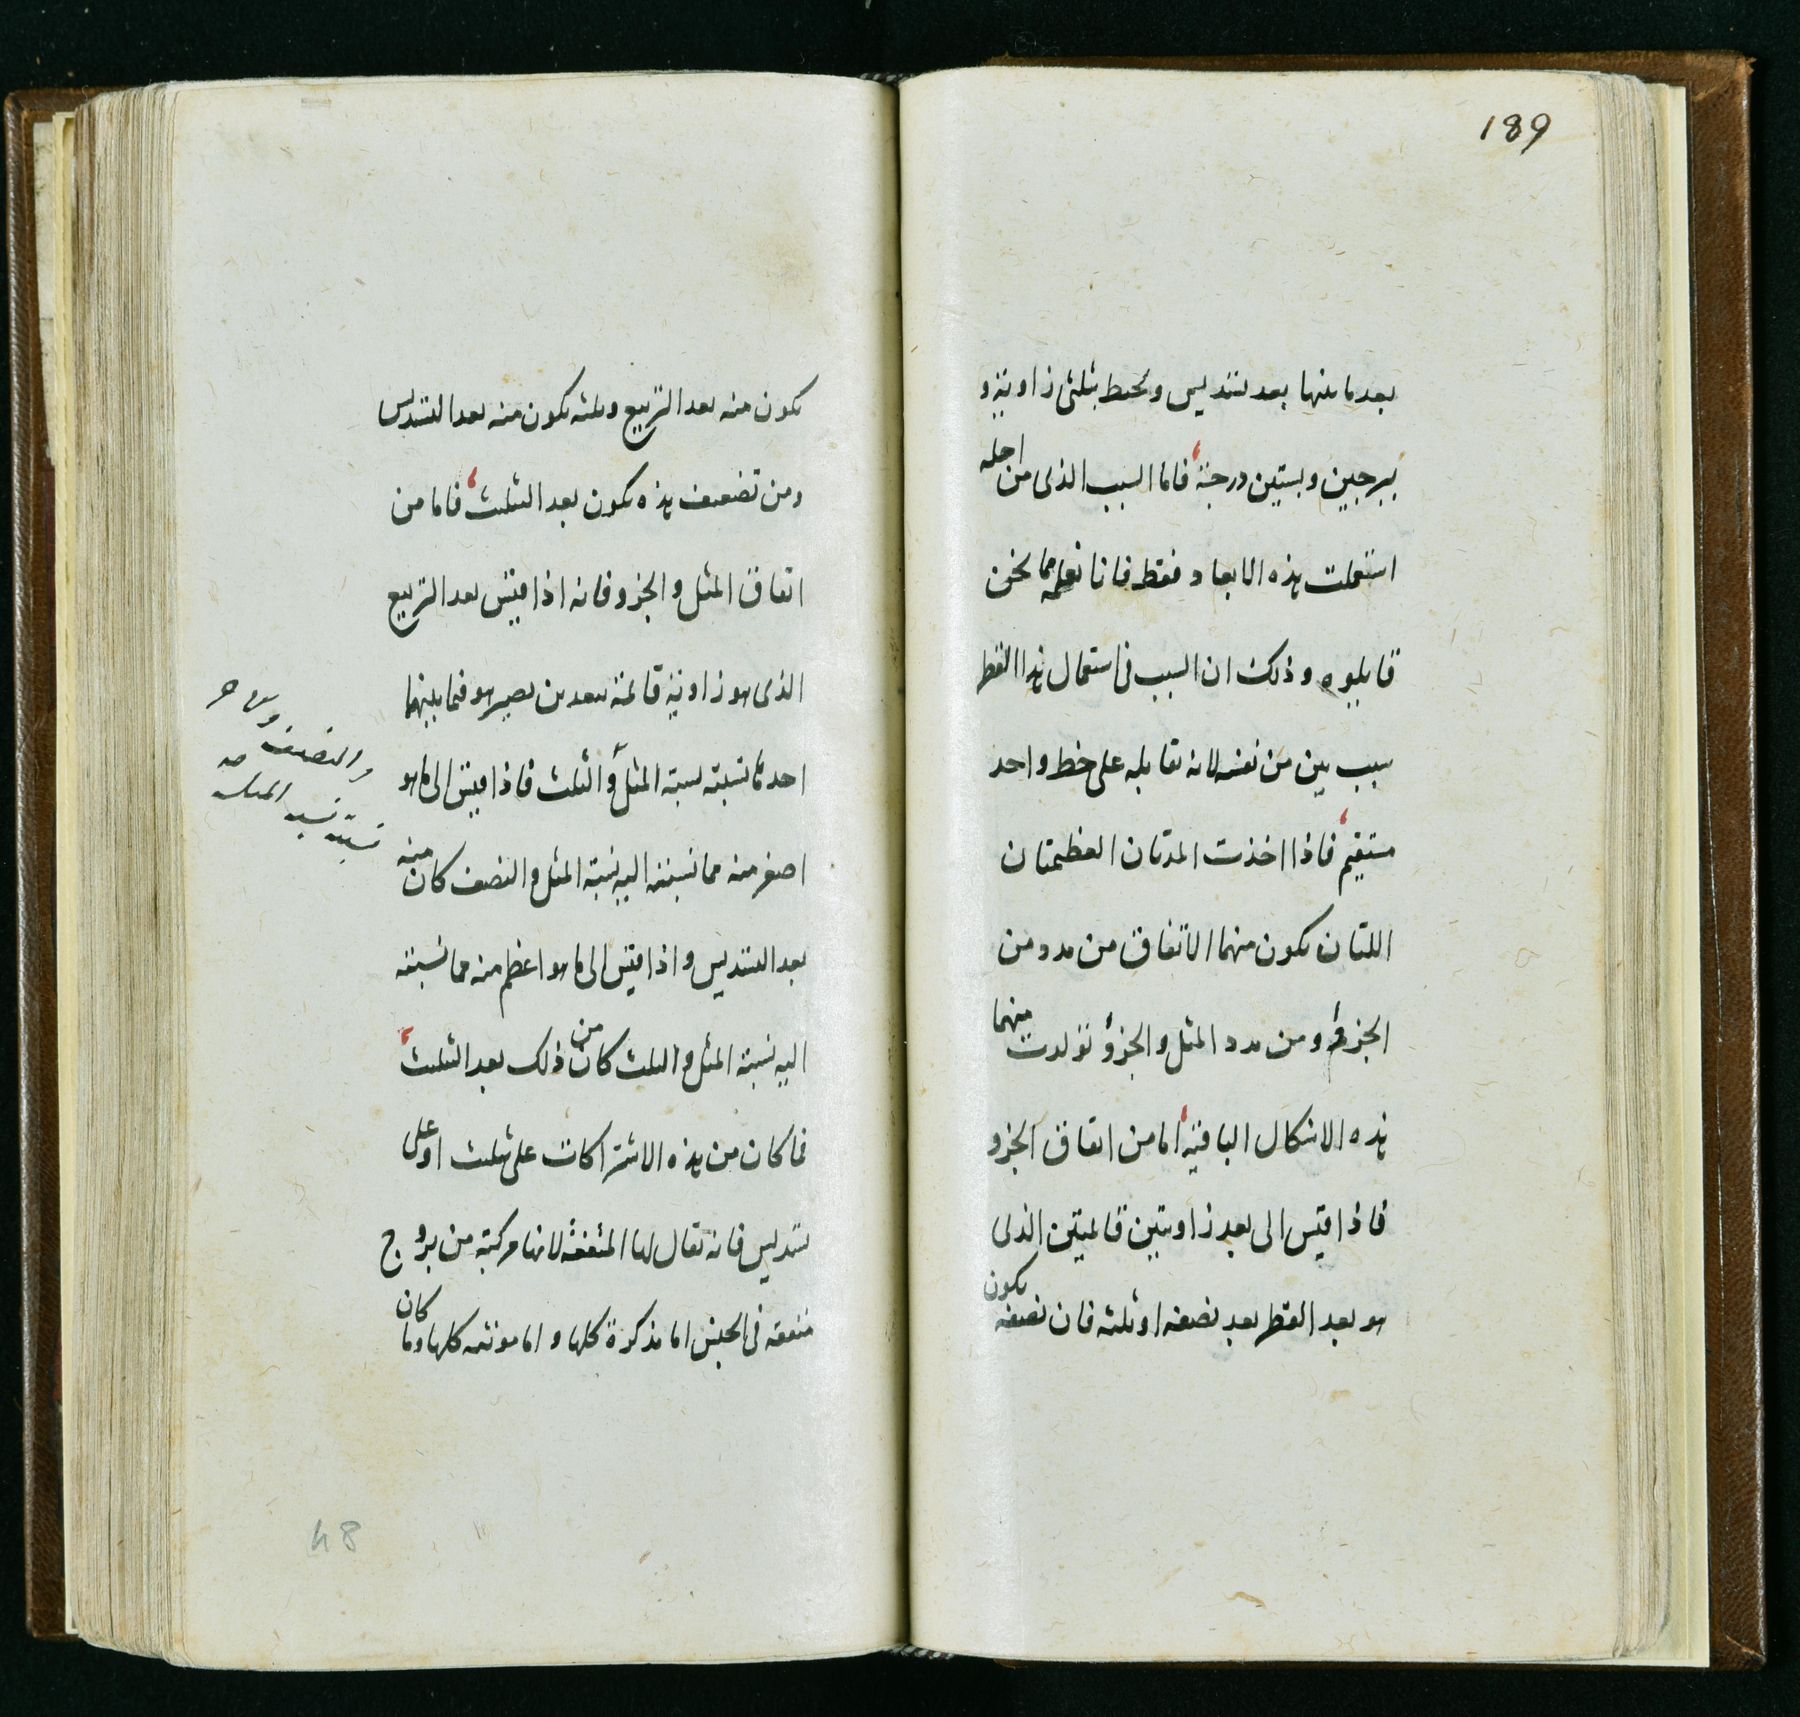 189
بعد ما بينها بعد تسديس ويحيط بثلثى زاوية و
ببرجين وبستين درجة فاما السبب الذى من اجله
استعملت هذه الابعاد فقط فانا نعلمه مما نحن
قايلوه وذلك ان السبب فى استعمال هذا القطر
سبب بين من نفسه لانه تقابله على خط واحد
مستقيم فاذا اخذت المدتان العظيمتان
اللتان يكون منهما الاتفاق من مدد من
الجزؤ ومن مدد المثل والجزؤ تولدت منهما
هذه الاشكال الباقية اما من اتفاق الجزو
فاذا قيس الى بعد زاويتين قائمتين الذى
هو بعد القطر بعد نصفه او ثلثه فان نصفه يكون
يكون منه بعد التربيع وثلثه يكون منه بعد التسديس
ومن تضعيف هذه يكون بعد التثليث فاما من
اتفاق المثل والجزو فانه اذا قيس بعد التربيع
الذى هو زاوية قائمة ببعدين يصير هو فيما بينهما
احدهما نسبته نسبة المثل و الثلث فاذا قيس الى ما هو
اصغر منه مما نسبته اليه نسبة المثل والنصف كان منه
بعد التسديس واذا قيس الى ما هو اعظم منه مما نسبته
اليه نسبة المثل والثلث كان من ذلك بعد التثليث
فما كان من هذه الاشتراكات على تثليث او على
تسديس فانه يقال لها المتفقة لانها مركبة من بروج
متفقه فى الجنس اما مذكرة كلها و اما مونثه كلها وما كان
والنصف
نسبته نسبه المثل
48